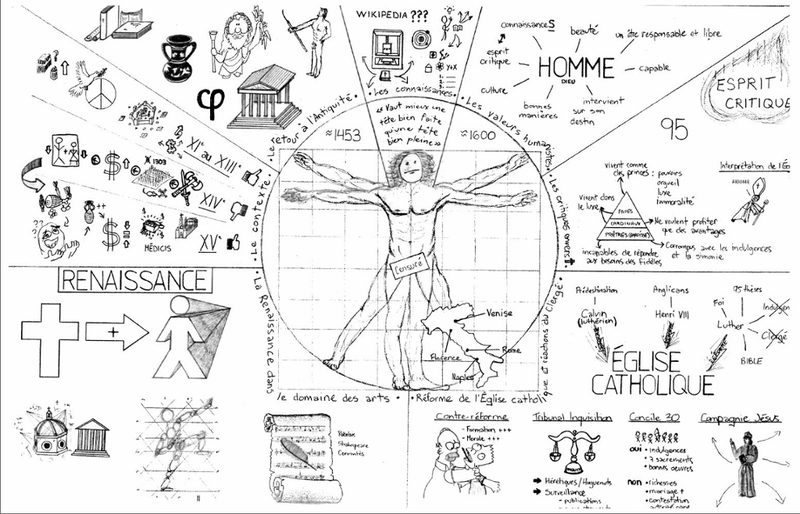 WIKIPEDIA ???
connaissances
beauté
un être responsable et libre
esprit
critique
HOMME
DIEU
capable
culture
bonnes
manières
intervient
sur son
destin
ESPRIT
CRITIQUE
φ
• Le contexte • Le retour à l'Antiquité • Les connaissances • Les valeurs humanistes • Les critiques envers
« Vaut mieux une
tête bien faite
qu'une tête
bien pleine »
≈1453
≈1600
95
XIe au XIIIe
1303
XIVe
MÉDICIS
XVe
vivent comme
des princes :
pauvres
orgueil
luxe
immoralité
Interprétation de l'É
vivent dans
le luxe
PAPES
CARDINAUX
PRÊTRES
Ne veulent profiter
que des avantages
Corrompus avec les indulgences
et la simonie
incapables de répondre
aux besoins des fidèles
Censuré
Venise
Rome
Florence
Naples
RENAISSANCE
+
La Renaissance dans
le domaine des arts • Réforme de l'Église catholique et réactions du Clergé
Prédestination
Calvin
(luthérien)
Anglicans
Henri VIII
95 thèses
Foi
Indulgen
Luther
Clergé
BIBLE
ÉGLISE
CATHOLIQUE
Rabelais
Shakespeare
Cervantès
Contre-réforme
- Formation +++
- Morale +++
Tribunal Inquisition
Hérétiques/Huguenots
Surveillance
- publications
Concile 30
oui
• indulgences
• 7 sacrements
• bonnes oeuvres
non
• richesses
• mariage †
• contestation
Compagnie Jésus